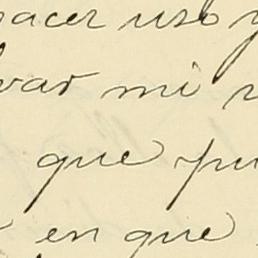 hacer uso
mi
que pu
en que